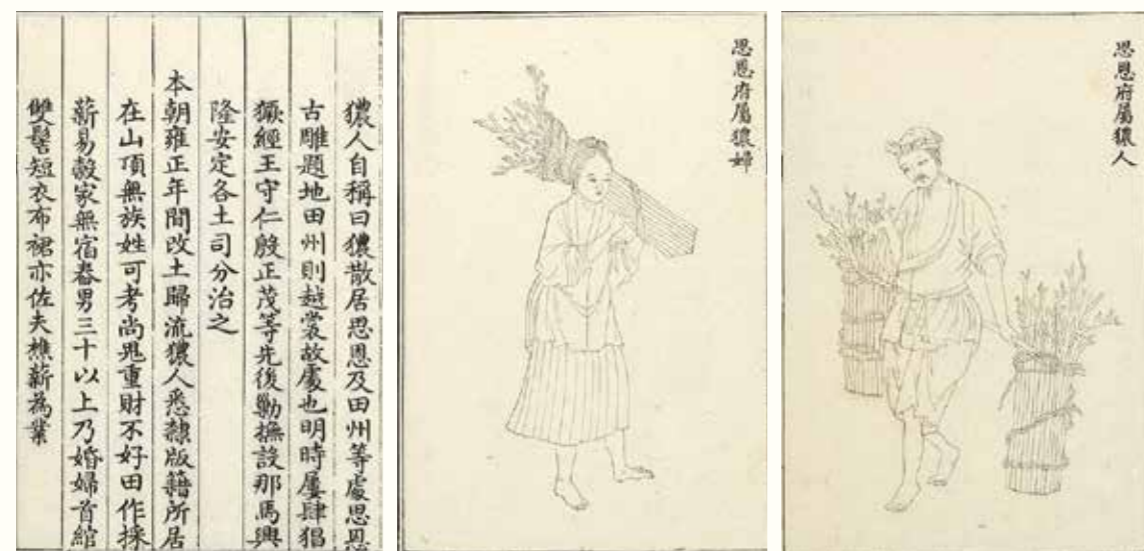 思恩府屬㺜人
思恩府屬㺜婦
㺜人自稱曰㺜散居思恩及田州等處思恩
古雕題地田州則越裳故處也明時屢肆猖
獗經王守仁殷正茂等先後勦撫設那馬興
隆安定各土司分治之
本朝雍正年間改土歸流㺜人悉隸版籍所居
在山頂無族姓可考尚鬼重財不好田作採
薪易穀家無宿舂男三十以上乃婚婦首綰
雙髻短衣布裙亦佐夫樵薪為業